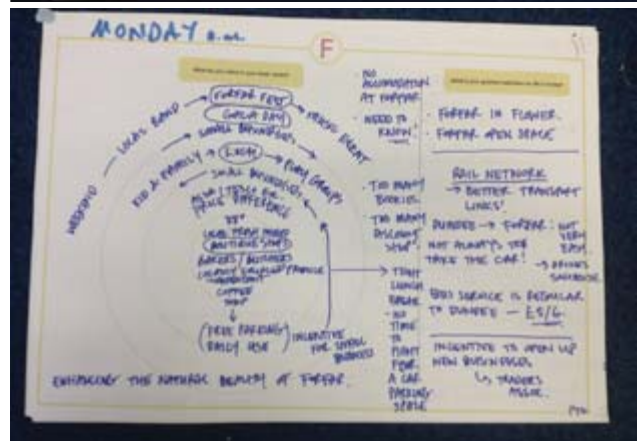 MONDAY a.m.
F
WEEKEND
LOCAL BAND
FORFAR FEST
GALA DAY
MUSIC EVENT
SMALL BUSINESSES
KID & FAMILY
LOCAL
PLAY GROUPS
SMALL BUSINESSES
PRICE DIFFERENCE
ANTIQUE SHOPS
BAKERS / BUTCHERS
LOCALLY
PRODUCE
COFFEE
SHOP
FREE PARKING
DAILY USE
INCENTIVE
FOR SMALL
BUSINESS
ENHANCING THE NATURAL BEAUTY OF FORFAR.
· NO
ACCOMODATION
AT FORFAR
· NEED TO
KNOW!
· TOO MANY
BOOKIES
· TOO MANY
DISCOUNT
SHOPS
→ TIGHT
LUNCH
BREAK
- NO
TIME
TO
FIGHT
FOR
A CAR
PARKING
SPACE
· FORFAR IN FLOWER.
· FORFAR OPEN SPACE
RAIL NETWORK
→ BETTER TRANSPORT
LINKS!
DUNDEE → FORFAR: NOT
VERY
EASY.
NOT ALWAYS
TAKE THE CAR!
BUS SERVICE IS REGULAR
TO DUNDEE —
INCENTIVE TO OPEN UP
NEW BUSINESSES
↳ TRADERS
ASSOC.
PTO